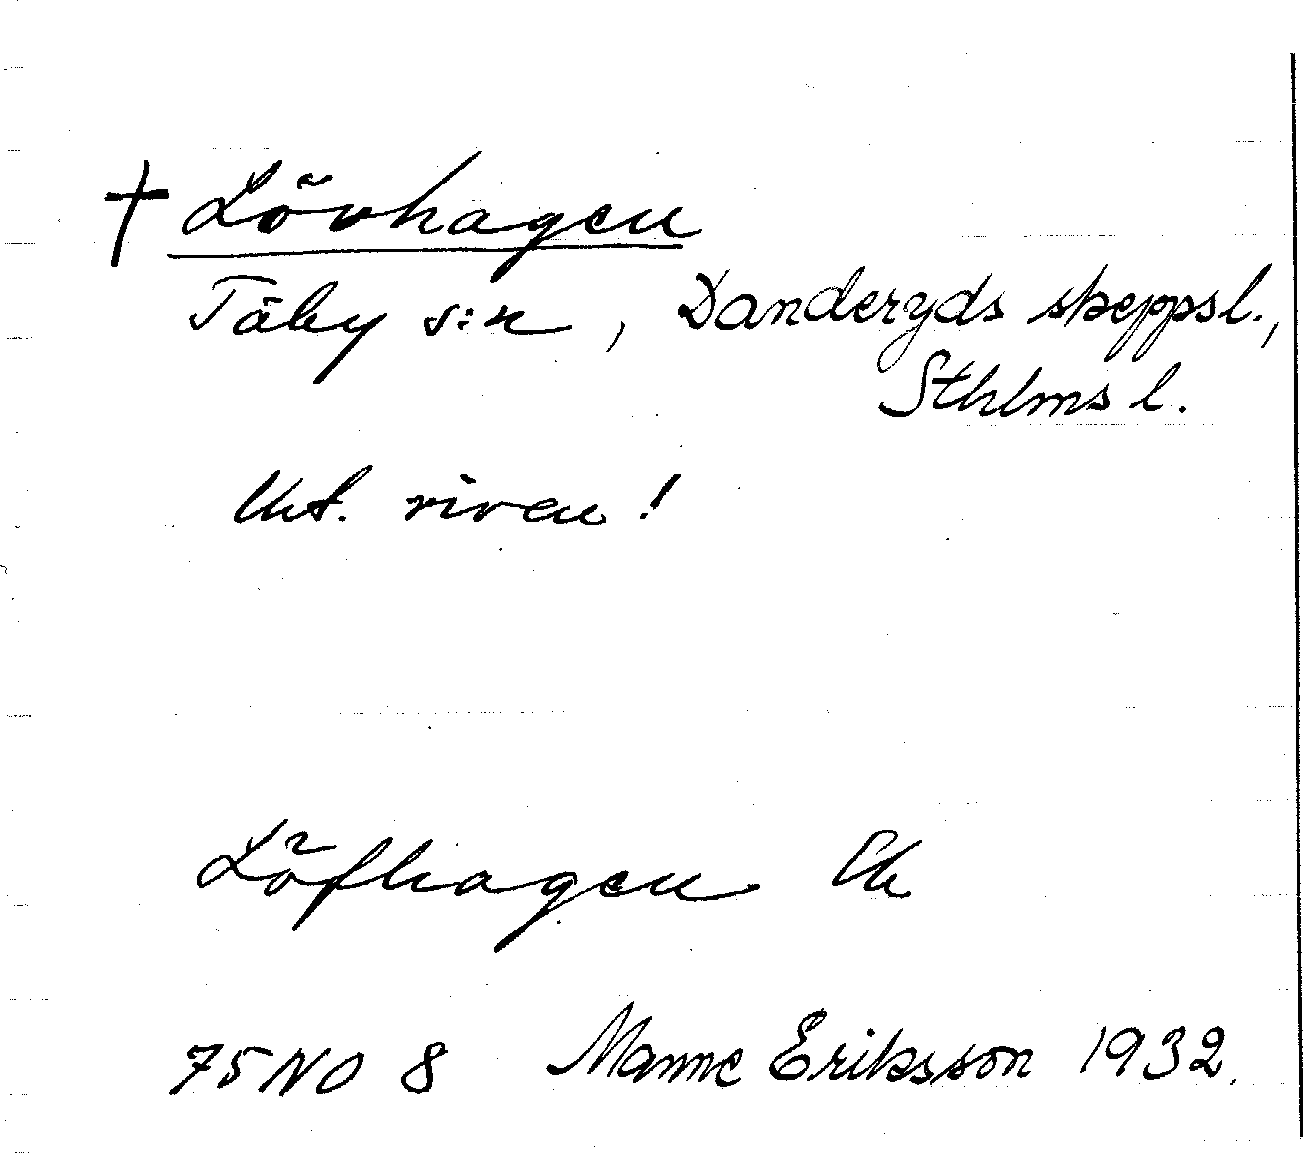 † Lövhagen
Täby s:n, Danderyds skeppsl.,
Sthlms l.
Unt. riven!
Löfhagen Ek
75 NO 8 Manne Eriksson 1932.